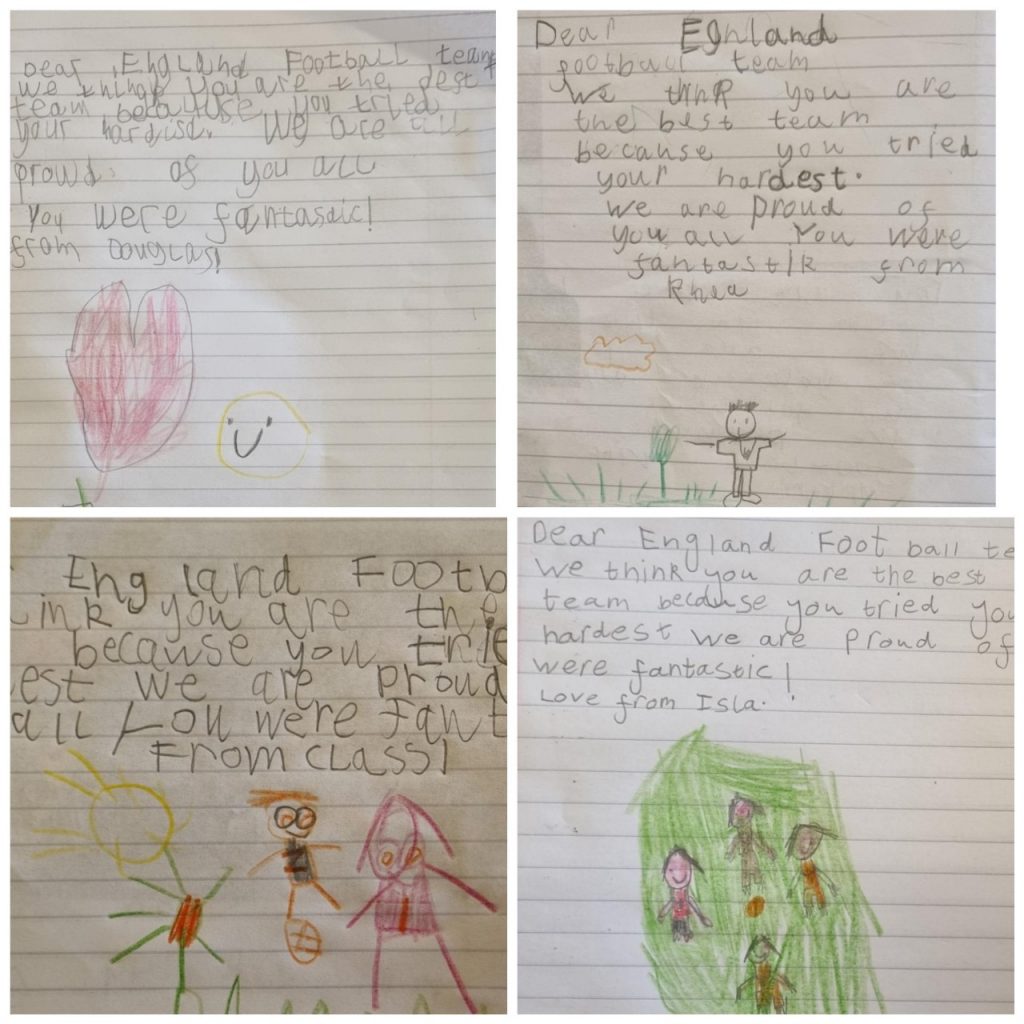 Dear England Football team
we thingk you are the best
team becaluse you tried
your hardisd. We are
proud of you all
You were fantasdic!
from Douglas!
Dear Egnland
football team
We think you are
the best team
because you tried
your hardest.
We are proud of
you all You were
fantastik from
Rhea
England Footb
ink you are the
because you trie
est we are proud
all You were fant
From CLASS1
Dear England Foot ball te
We think you are the best
team because you tried you
hardest we are proud of
were fantastic!
Love from Isla.